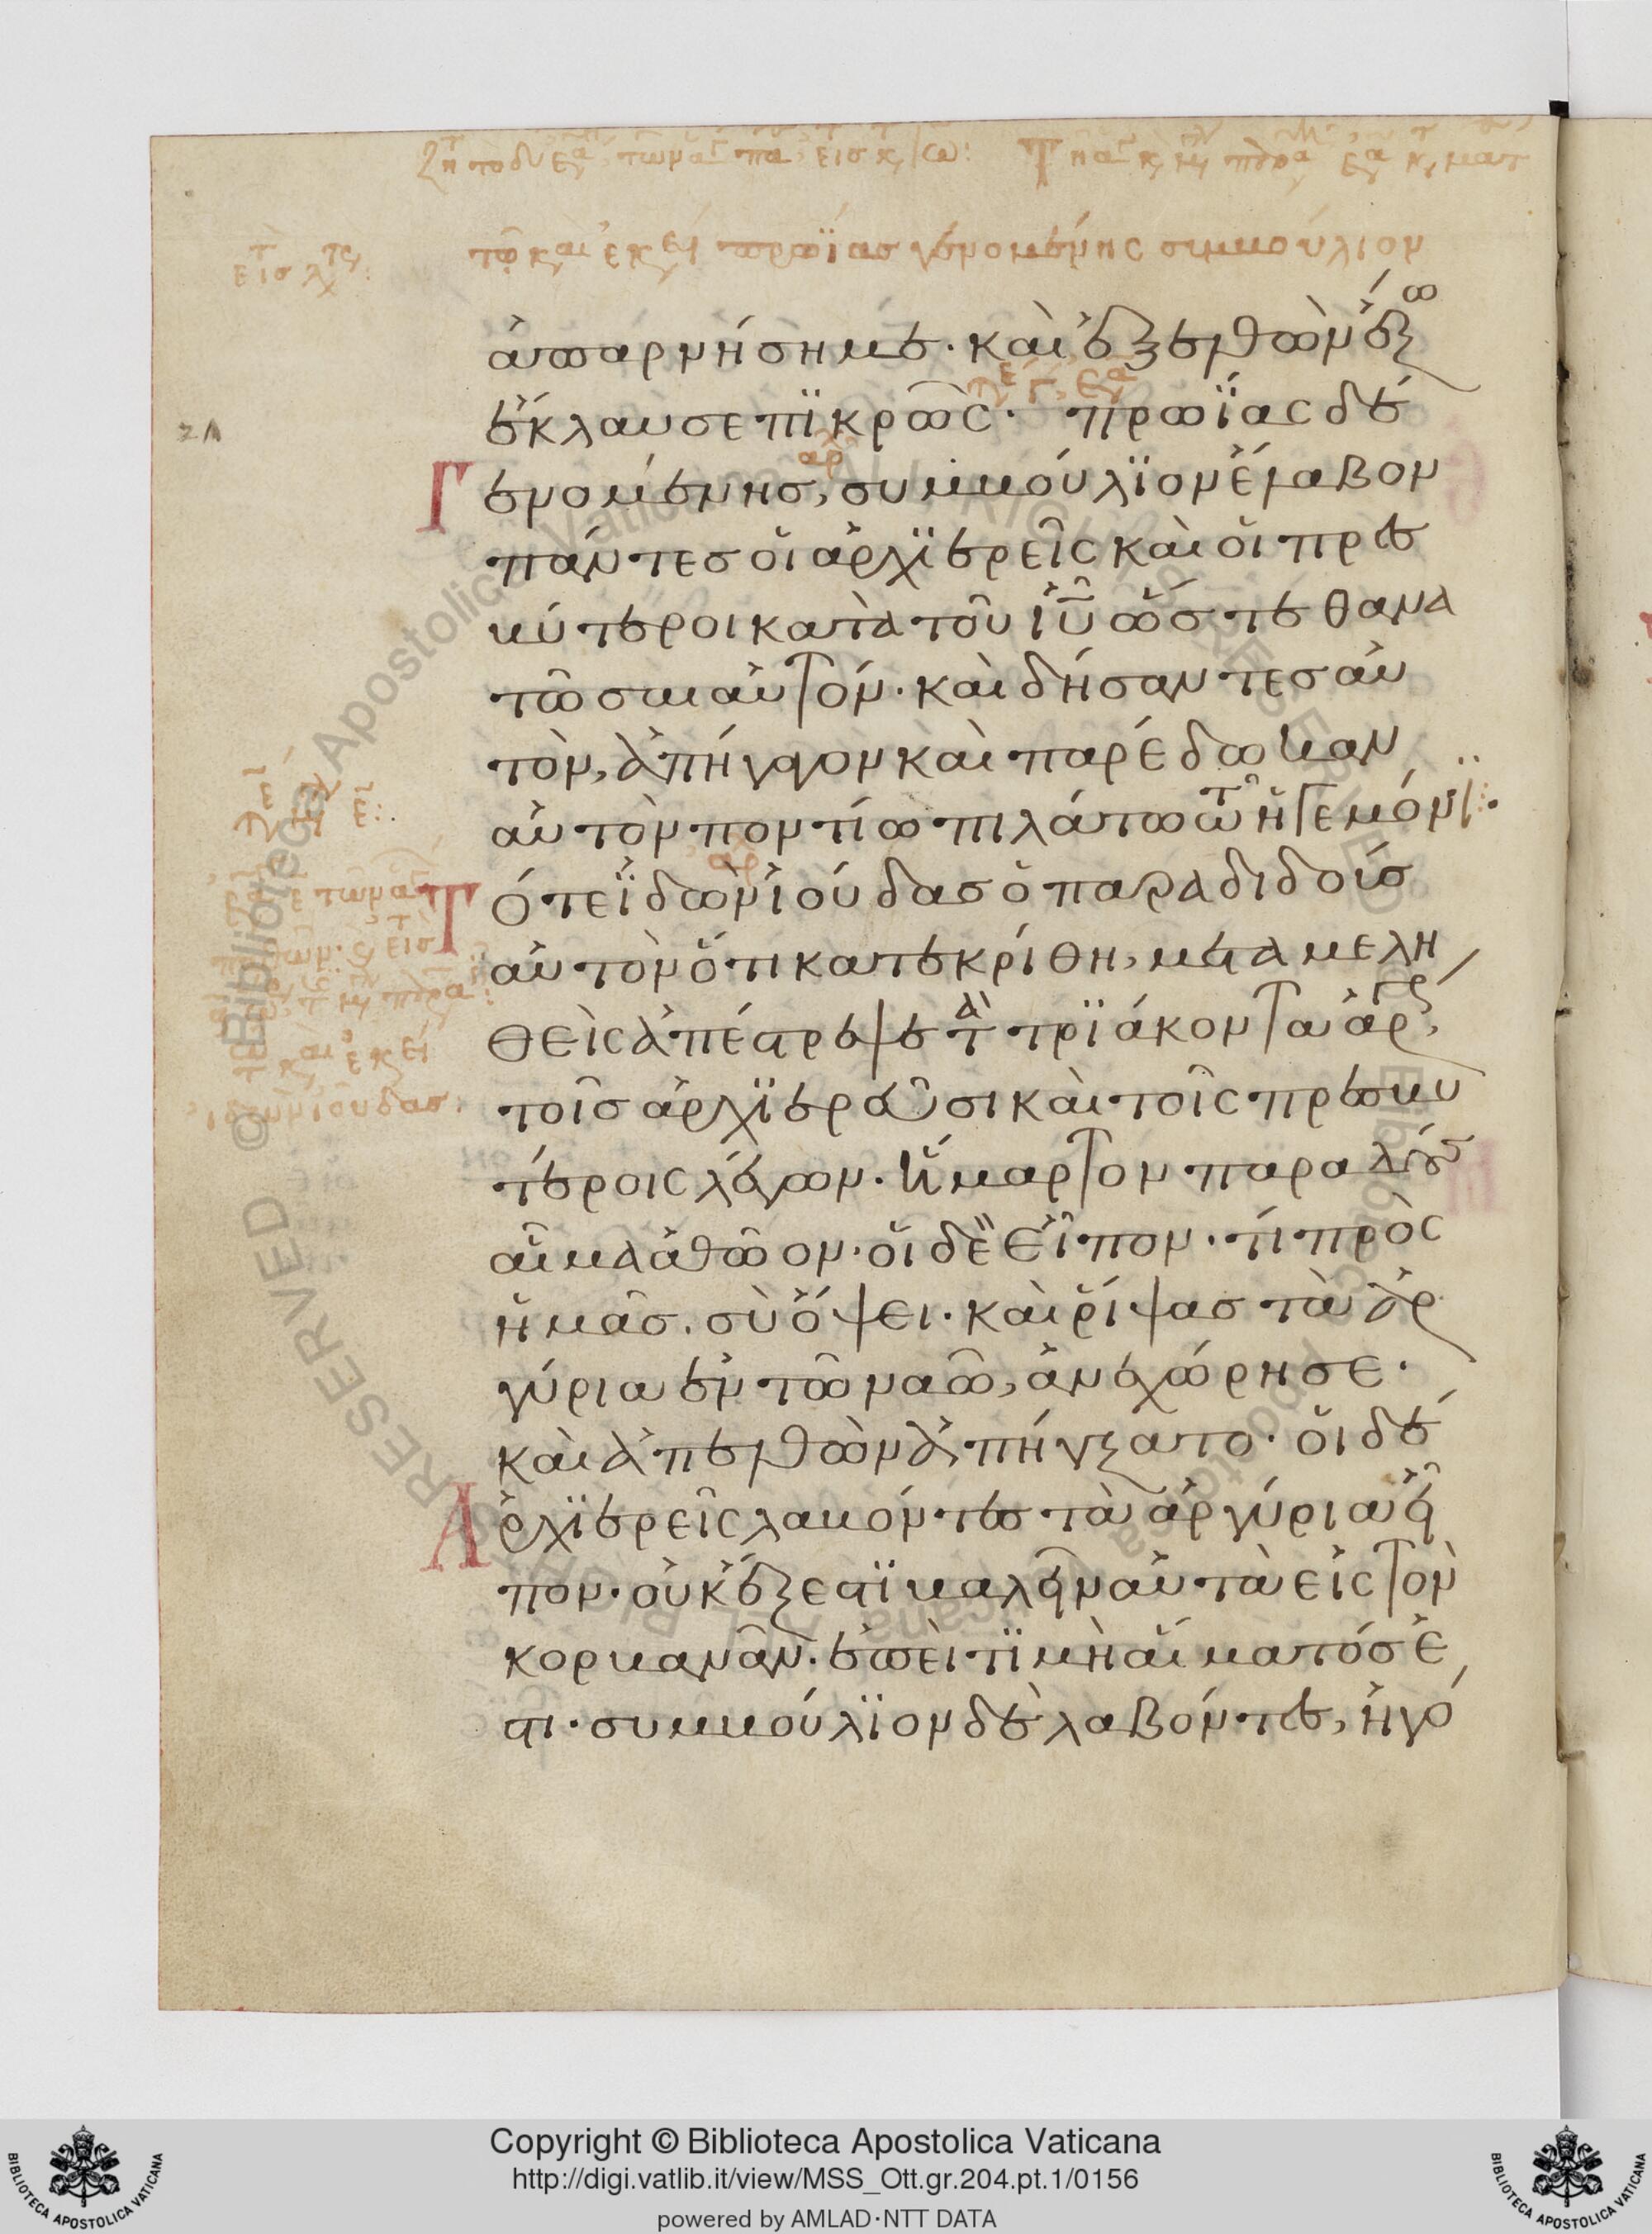 τῷ καιρῷ ἐκείνῳ πρωΐας γενομένης συμβούλιον
ἀπαρνήση με· καὶ ἐξελθὼν ἔξω
ἔκλαυσε πϊκρῶς· πρωΐας δὲ
Γενομένης, συμβούλϊον ἔλαβον
πάντες οἱ ἀρχϊερεῖς καὶ οἱ πρεσ
βύτεροι κατὰ τοῦ ἰῦ ὥστε θανα
τῶσαι αὐτόν· καὶ δήσαντες αὐ
τὸν, ἀπήγαγον καὶ παρέδωκαν
αὐτὸν ποντίω πιλάτω τῶ ἡγεμόνι
Τότε ἰδὼν ἰούδας ὁ παραδιδοὺσ
αὐτὸν ὅτι κατεκρίθη, μεταμελη
θεὶς ἀπέστρεψε τὰ τρϊάκοντα ἀργ,
τοῖς ἀρχϊερεῦσι καὶ τοῖς πρεσβυ
τέροις λέγων. ἥμαρτον παραδοὺς
αἷμα ἀθῶον· οἱ δὲ εἶπον· τί πρὸς
ἡμᾶς. σὺ ὄψει· καὶ ῥίψας τὰ ἀρ
γύρια ἐν τῶ ναῶ, ἀνεχώρησε·
καὶ ἀπελθὼν ἀπήγξατο· οἱ δὲ
Ἀρχϊερεῖς λαβόντες τὰ ἀργύρια εἶ
πον· οὐκ ἔξεστϊ βαλεῖν αὐτὰ εἰς τὸν
κορβανᾶν. ἐπεὶ τϊμὴ αἵματός ἐ
στι· συμβούλϊον δὲ λαβόντες, ἠγό
Copyright © Biblioteca Apostolica Vaticana
http://digi.vatlib.it/view/MSS_Ott.gr.204.pt.1/0156
powered by AMLAD·NTT DATA
BIBLIOTECA APOSTOLICA VATICANA
BIBLIOTECA APOSTOLICA VATICANA